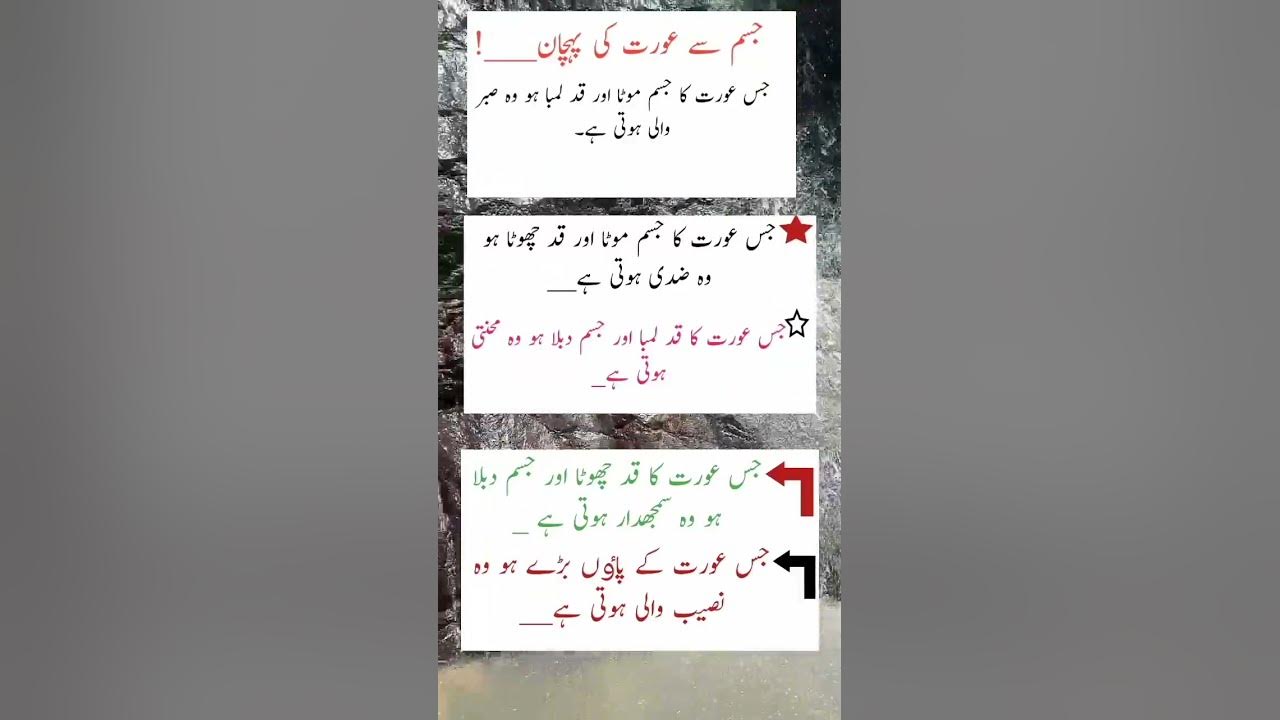 جسم سے عورت کی پہچان____!
جس عورت کا جسم موٹا اور قد لمبا ہو وہ صبر
والی ہوتی ہے۔
جس عورت کا جسم موٹا اور قد چھوٹا ہو
وہ ضدی ہوتی ہے__
جس عورت کا قد لمبا اور جسم دبلا ہو وہ محنتی
ہوتی ہے_
جس عورت کا قد چھوٹا اور جسم دبلا
ہو وہ سمجھدار ہوتی ہے _
جس عورت کے پاؤں بڑے ہو وہ
نصیب والی ہوتی ہے__